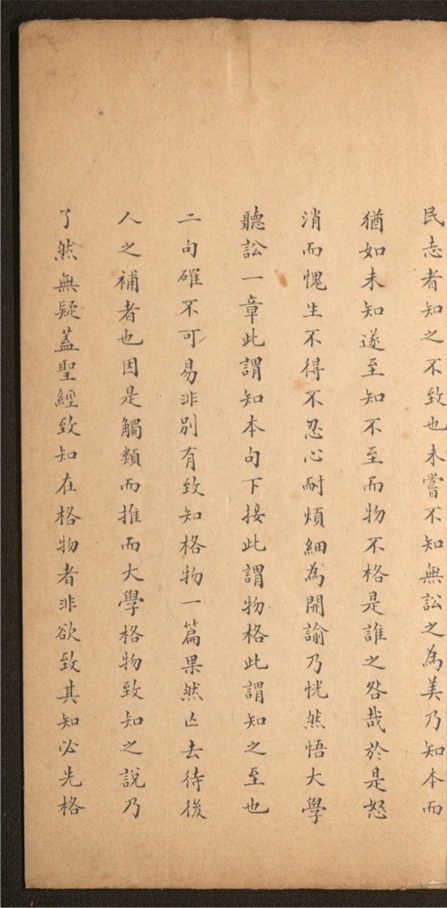 民志者知之不致也未嘗不知無訟之為美乃知本而
猶如未知遂至知不至而物不格是誰之咎哉於是怒
消而愧生不得不忍心耐煩細為開諭乃恍然悟大學
聽訟一章此謂知本句下接此謂物格此謂知之至也
二句確不可易非別有致知格物一篇果然亾去待後
人之補者也因是觸類而推而大學格物致知之說乃
了然無疑蓋聖經致知在格物者非欲致其知必先格